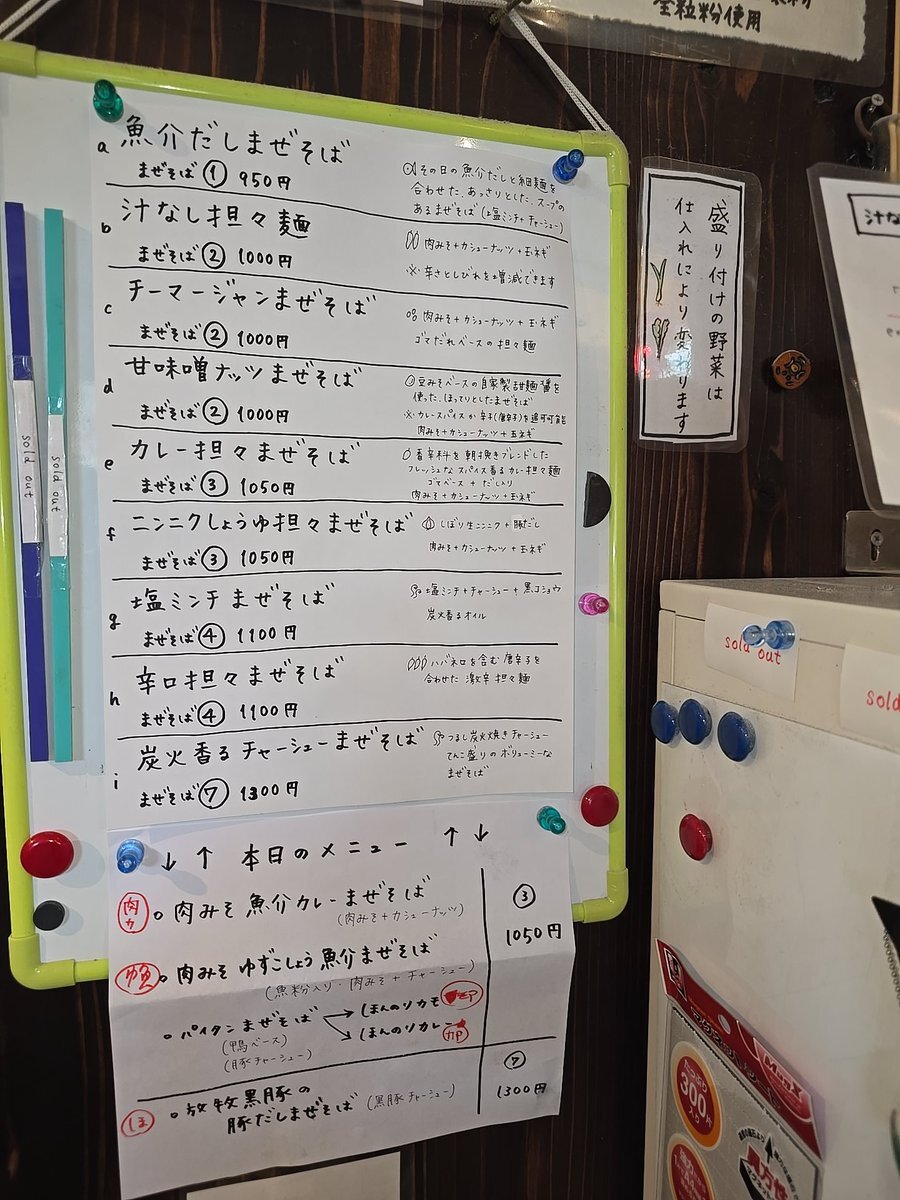 全粒粉使用
a 魚介だしまぜそば
まぜそば ① 950円
その日の魚介だしと細麺を
合わせた、あっさりとした、スープの
あるまぜそば (塩ミンチ+チャーシュー)
b 汁なし担々麺
まぜそば ② 1000円
肉みそ+カシューナッツ+玉ネギ
※辛さとしびれを増減できます
c チーマージャンまぜそば
まぜそば ② 1000円
肉みそ+カシューナッツ+玉ネギ
ゴマだれベースの担々麺
d 甘味噌ナッツまぜそば
まぜそば ② 1000円
豆みそベースの自家製甜麺醤を
使った、ほってりとしたまぜそば
※カレースパイスか辛子(唐辛子)を追可可能
肉みそ+カシューナッツ+玉ネギ
e カレー担々まぜそば
まぜそば ③ 1050円
香辛料を朝挽きブレンドした
フレッシュなスパイス香るカレー担々麺
ゴマベース + だし入り
肉みそ+カシューナッツ+玉ネギ
f ニンニクしょうゆ担々まぜそば
まぜそば ③ 1050円
しぼり生ニンニク+豚だし
肉みそ+カシューナッツ+玉ネギ
g 塩ミンチまぜそば
まぜそば ④ 1100円
塩ミンチ+チャーシュー+黒コショウ
炭火香るオイル
h 辛口担々まぜそば
まぜそば ④ 1100円
ハバネロを含む唐辛子を
合わせた 激辛担々麺
i 炭火香るチャーシューまぜそば
まぜそば ⑦ 1300円
つるし炭火焼きチャーシュー
てんこ盛りのボリューミーな
まぜそば
↓↑ 本日のメニュー ↑↓
肉カ 。肉みそ 魚介カレーまぜそば
(肉みそ+カシューナッツ)
③
1050円
ゆ魚 。肉みそ ゆずこしょう魚介まぜそば
(魚粉入り・肉みそ+チャーシュー)
。パイタンまぜそば
→ほんのりカモ
→ほんのりカレー
(鴨ベース)
(豚チャーシュー)
ほ 。放牧黒豚の
豚だしまぜそば (黒豚チャーシュー)
⑦
1300円
sold out
sold out
盛り付けの野菜は
仕入れにより変わります
汁な
sold out
sold
マグネットシート
たっぷり
300片
入り
強力